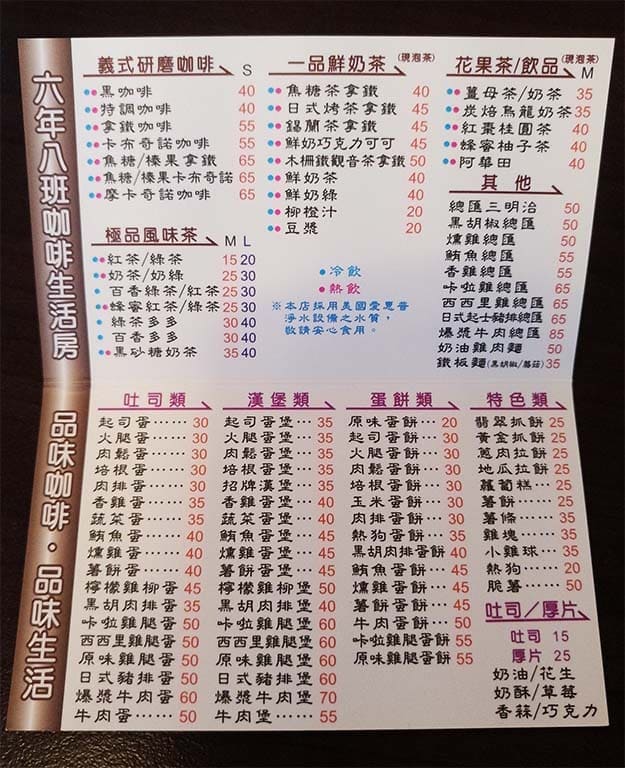 六年八班咖啡生活房
義式研磨咖啡 S
黑咖啡 40
特調咖啡 40
拿鐵咖啡 55
卡布奇諾咖啡 55
焦糖/榛果拿鐵 65
焦糖/榛果卡布奇諾 65
摩卡奇諾咖啡 65
極品風味茶 M L
紅茶/綠茶 15 20
奶茶/奶綠 25 30
百香綠茶/紅茶 25 30
蜂蜜紅茶/綠茶 25 30
綠茶多多 30 40
百香多多 30 40
黑砂糖奶茶 35 40
一品鮮奶茶 (現泡茶)
焦糖茶拿鐵 40
日式烤茶拿鐵 45
錫蘭茶拿鐵 45
鮮奶巧克力可可 45
木柵鐵觀音茶拿鐵 50
鮮奶茶 40
鮮奶綠 40
柳橙汁 20
豆漿 20
冷飲
熱飲
※本店採用美國愛惠普
淨水設備之水質，
敬請安心食用。
花果茶/飲品 (現泡茶) M
薑母茶/奶茶 35
炭焙烏龍奶茶 35
紅棗桂圓茶 40
蜂蜜柚子茶 40
阿華田 40
其他
總匯三明治 50
黑胡椒總匯 50
燻雞總匯 50
鮪魚總匯 55
香雞總匯 55
卡啦雞總匯 65
西西里雞總匯 65
日式起士豬排總匯 65
爆漿牛肉總匯 85
奶油雞肉麵 50
鐵板麵(黑胡椒/蘑菇) 35
品味咖啡・品味生活
吐司類
起司蛋…… 30
火腿蛋…… 30
肉鬆蛋…… 30
培根蛋…… 30
肉排蛋…… 30
香雞蛋…… 35
蔬菜蛋…… 35
鮪魚蛋…… 40
燻雞蛋…… 40
薯餅蛋…… 40
檸檬雞柳蛋 45
黑胡肉排蛋 35
卡啦雞腿蛋 50
西西里雞腿蛋 50
原味雞腿蛋 50
日式豬排蛋 50
爆漿牛肉蛋 60
牛肉蛋…… 50
漢堡類
起司蛋堡… 35
火腿蛋堡… 35
肉鬆蛋堡… 35
培根蛋堡… 35
招牌漢堡… 35
香雞蛋堡… 40
蔬菜蛋堡… 40
鮪魚蛋堡… 45
燻雞蛋堡… 45
薯餅蛋堡… 45
檸檬雞柳堡 50
黑胡肉排堡 40
卡啦雞腿堡 60
西西里雞腿堡 60
原味雞腿堡 60
日式豬排堡 60
爆漿牛肉堡 70
牛肉堡…… 55
蛋餅類
原味蛋餅… 20
起司蛋餅… 30
火腿蛋餅… 30
肉鬆蛋餅… 30
培根蛋餅… 30
玉米蛋餅… 30
肉排蛋餅… 30
熱狗蛋餅… 35
黑胡肉排蛋餅 40
鮪魚蛋餅… 40
燻雞蛋餅… 45
薯餅蛋餅… 45
牛肉蛋餅… 50
卡啦雞腿蛋餅 55
原味雞腿蛋餅 55
特色類
翡翠抓餅 25
黃金抓餅 25
蔥肉拉餅 25
地瓜拉餅 25
蘿蔔糕… 25
薯餅…… 25
薯條…… 35
雞塊…… 35
小雞球… 35
熱狗…… 20
脆薯…… 50
吐司/厚片
吐司 15
厚片 25
奶油/花生
奶酥/草莓
香蒜/巧克力